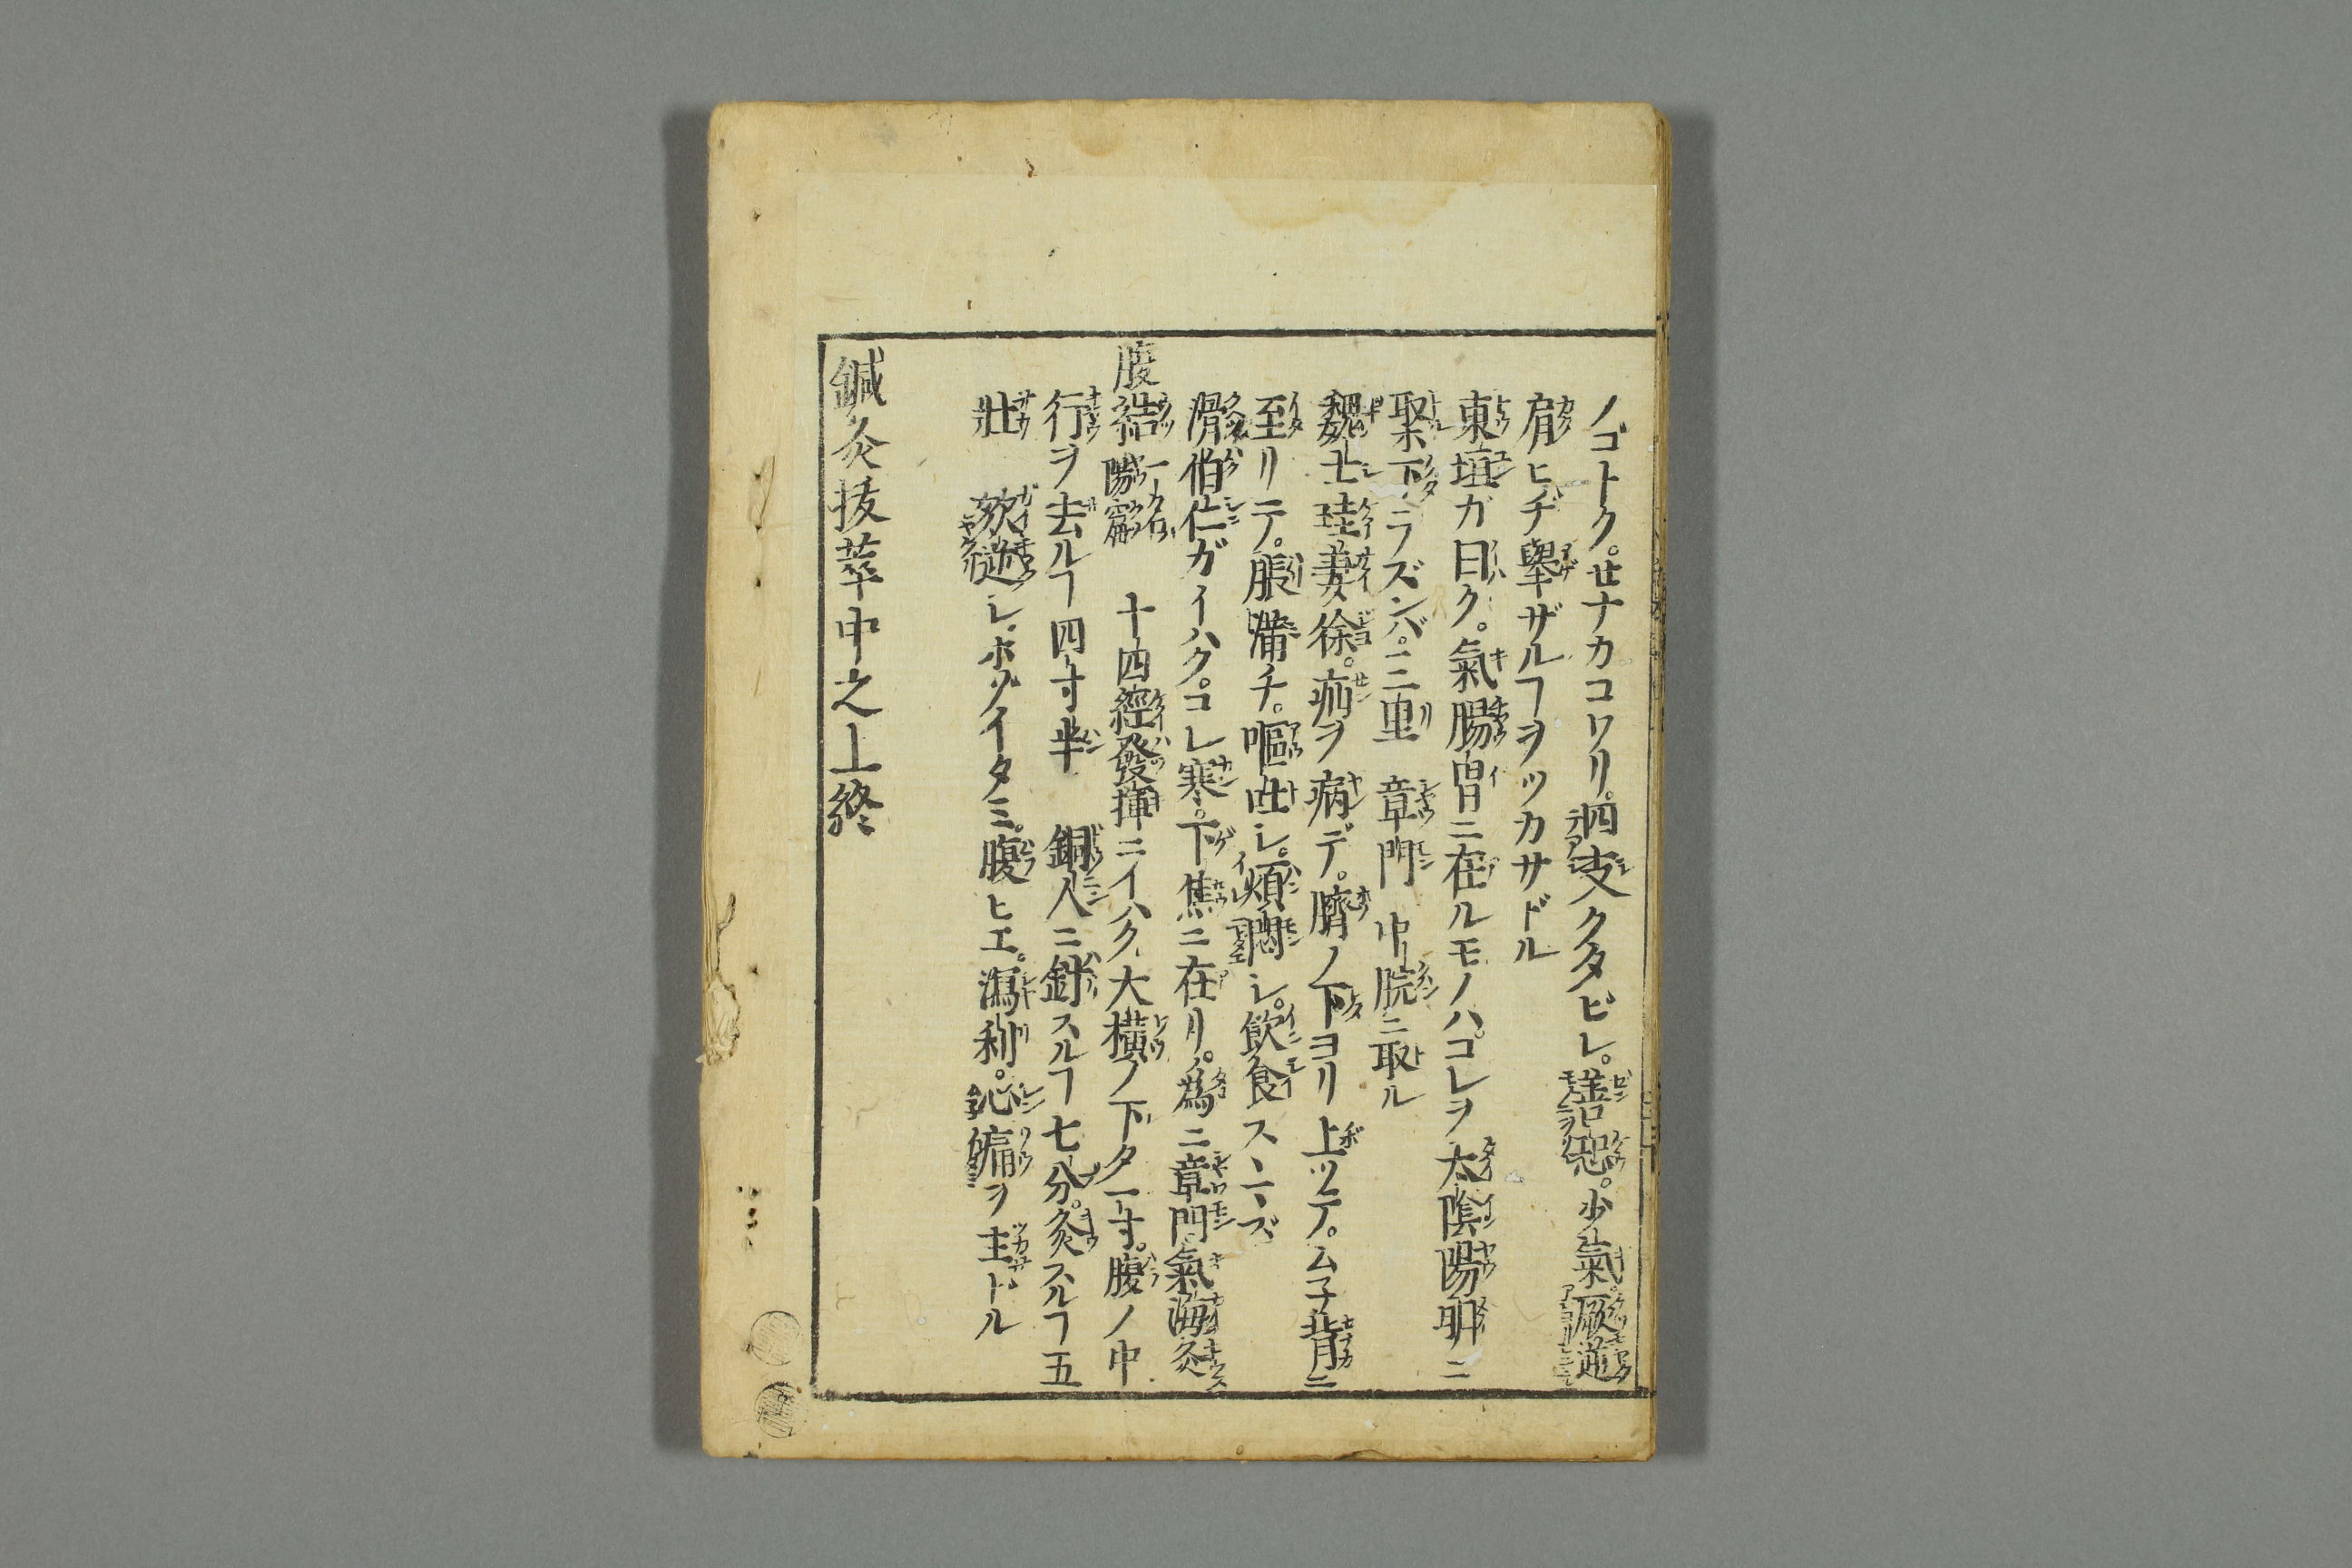 ノゴトク。せナカコワリ。四支クタビレ。善恐。少氣厥逆
肩ヒヂ舉ザルヿヲツカサドル
東垣ガ曰ク。氣腸胃ニ在ルモノハ。コレヲ太陰陽明ニ
取下ラズンバ。三里 章門 中脘ニ取ル
魏士珪妻徐。疝ヲ病デ。臍ノ下ヨリ上ツテ。ムネ背ニ
至リテ。脹滿チ。嘔吐シ。煩悶シ。飲食スヽマズ
滑伯仁ガイハク。コレ寒。下焦ニ在リ。為ニ章門氣海灸
腹結 一名 腸窟 十四經發揮ニイハク大橫ノ下タ一寸。腹ノ中
行ヲ去ルヿ四寸半 銅人ニ針スルヿ七分。灸スルヿ五
壯 欬逆シ。ホゾイタミ。腹ヒエ。瀉利。心痛ヲ主ドル
鍼灸拔萃中之上終